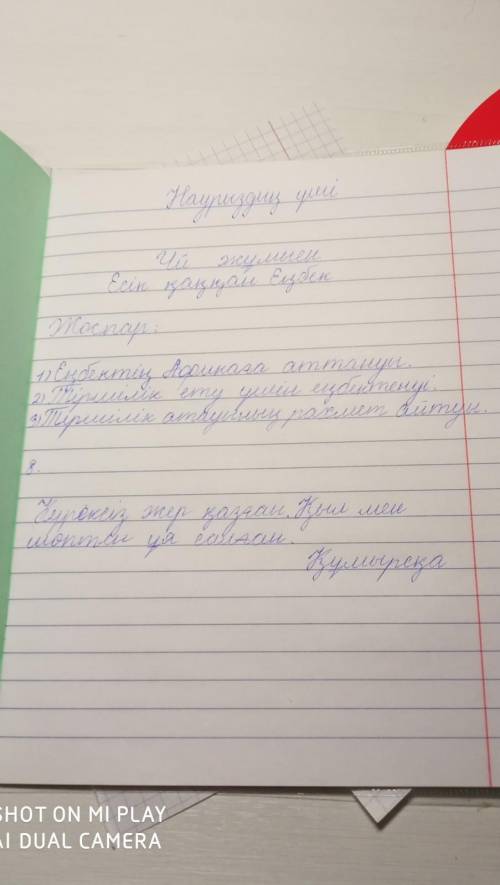 Наурыздың үші
Үй жұмысы
Есік қаққан Еңбек
Жоспар:
1) Еңбектің Африкаға аттануы.
2) Тіршілік ету үшін еңбектенуі.
3) Тіршілік атаулының рахмет айтуы.
8.
Күрексіз жер қазған. Қыл мен
шөптен ұя салған.
Құмырсқа
SHOT ON MI PLAY
AI DUAL CAMERA